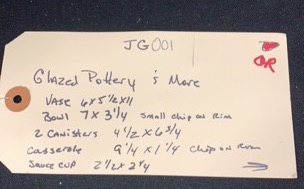 JG001
Glazed Pottery & More
Vase 6x5 1/2x11
Bowl 7x3 1/4 small chip on Rim
2 Canisters 4 1/2 x 6 3/4
Casserole 9 1/4 x 1 1/4 chip on Rim
Sauce cup 2 1/2 x 2 3/4